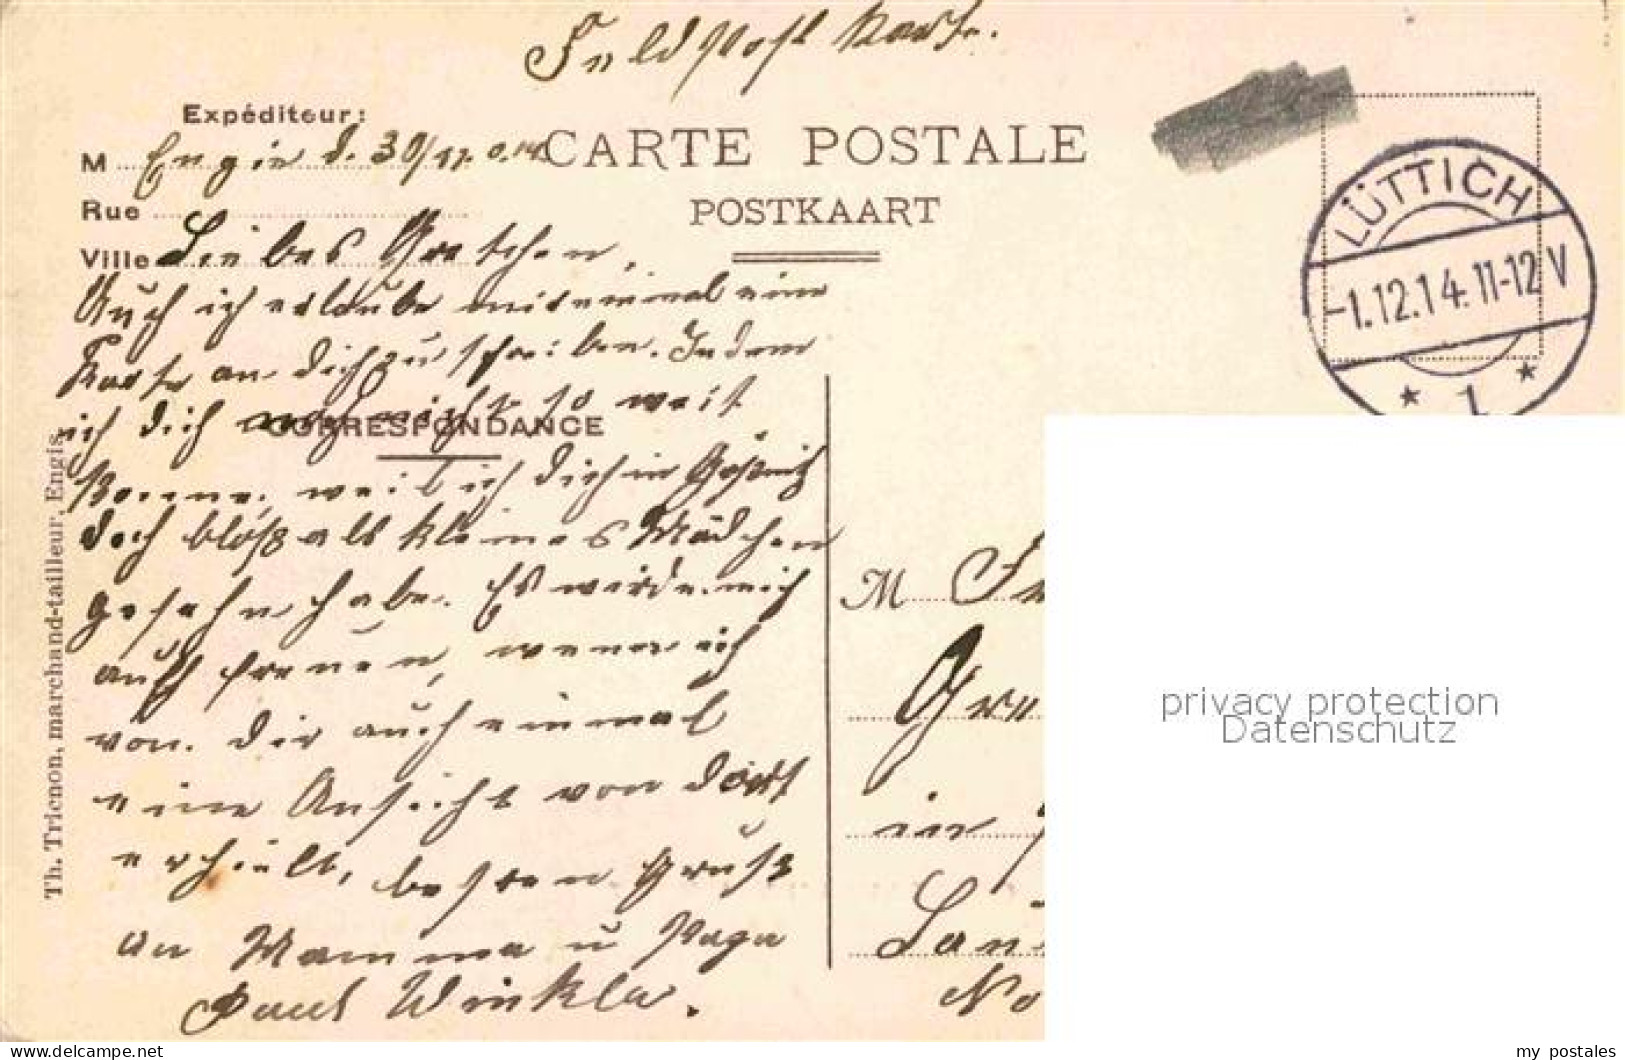 Feldpostkarte.
Expéditeur:
M Engis d. 30/11. 0.14.
CARTE POSTALE
POSTKAART
Rue
Ville
LÜTTICH
-1.12.14. 11-12 V
* 1 *
Liebes Gretchen,
Auch ich erlaube mir einmal eine
Karte an dich zu schreiben. Indem
ich dich noch nicht so weit
CORRESPONDANCE
kenne, weil ich dich in Gößnitz
doch bloß als kleines Mädchen
gesehn habe. Es würde mich
auch freuen, wenn ich
von dir auch einmal
eine Ansicht von dort
erhielt, besten Gruß
an Mamma u Papa
Paul Winkler.
Th. Tricnon, marchand-tailleur, Engis.
M
in
No
privacy protection
Datenschutz
my postales
Las mejores postales en internet